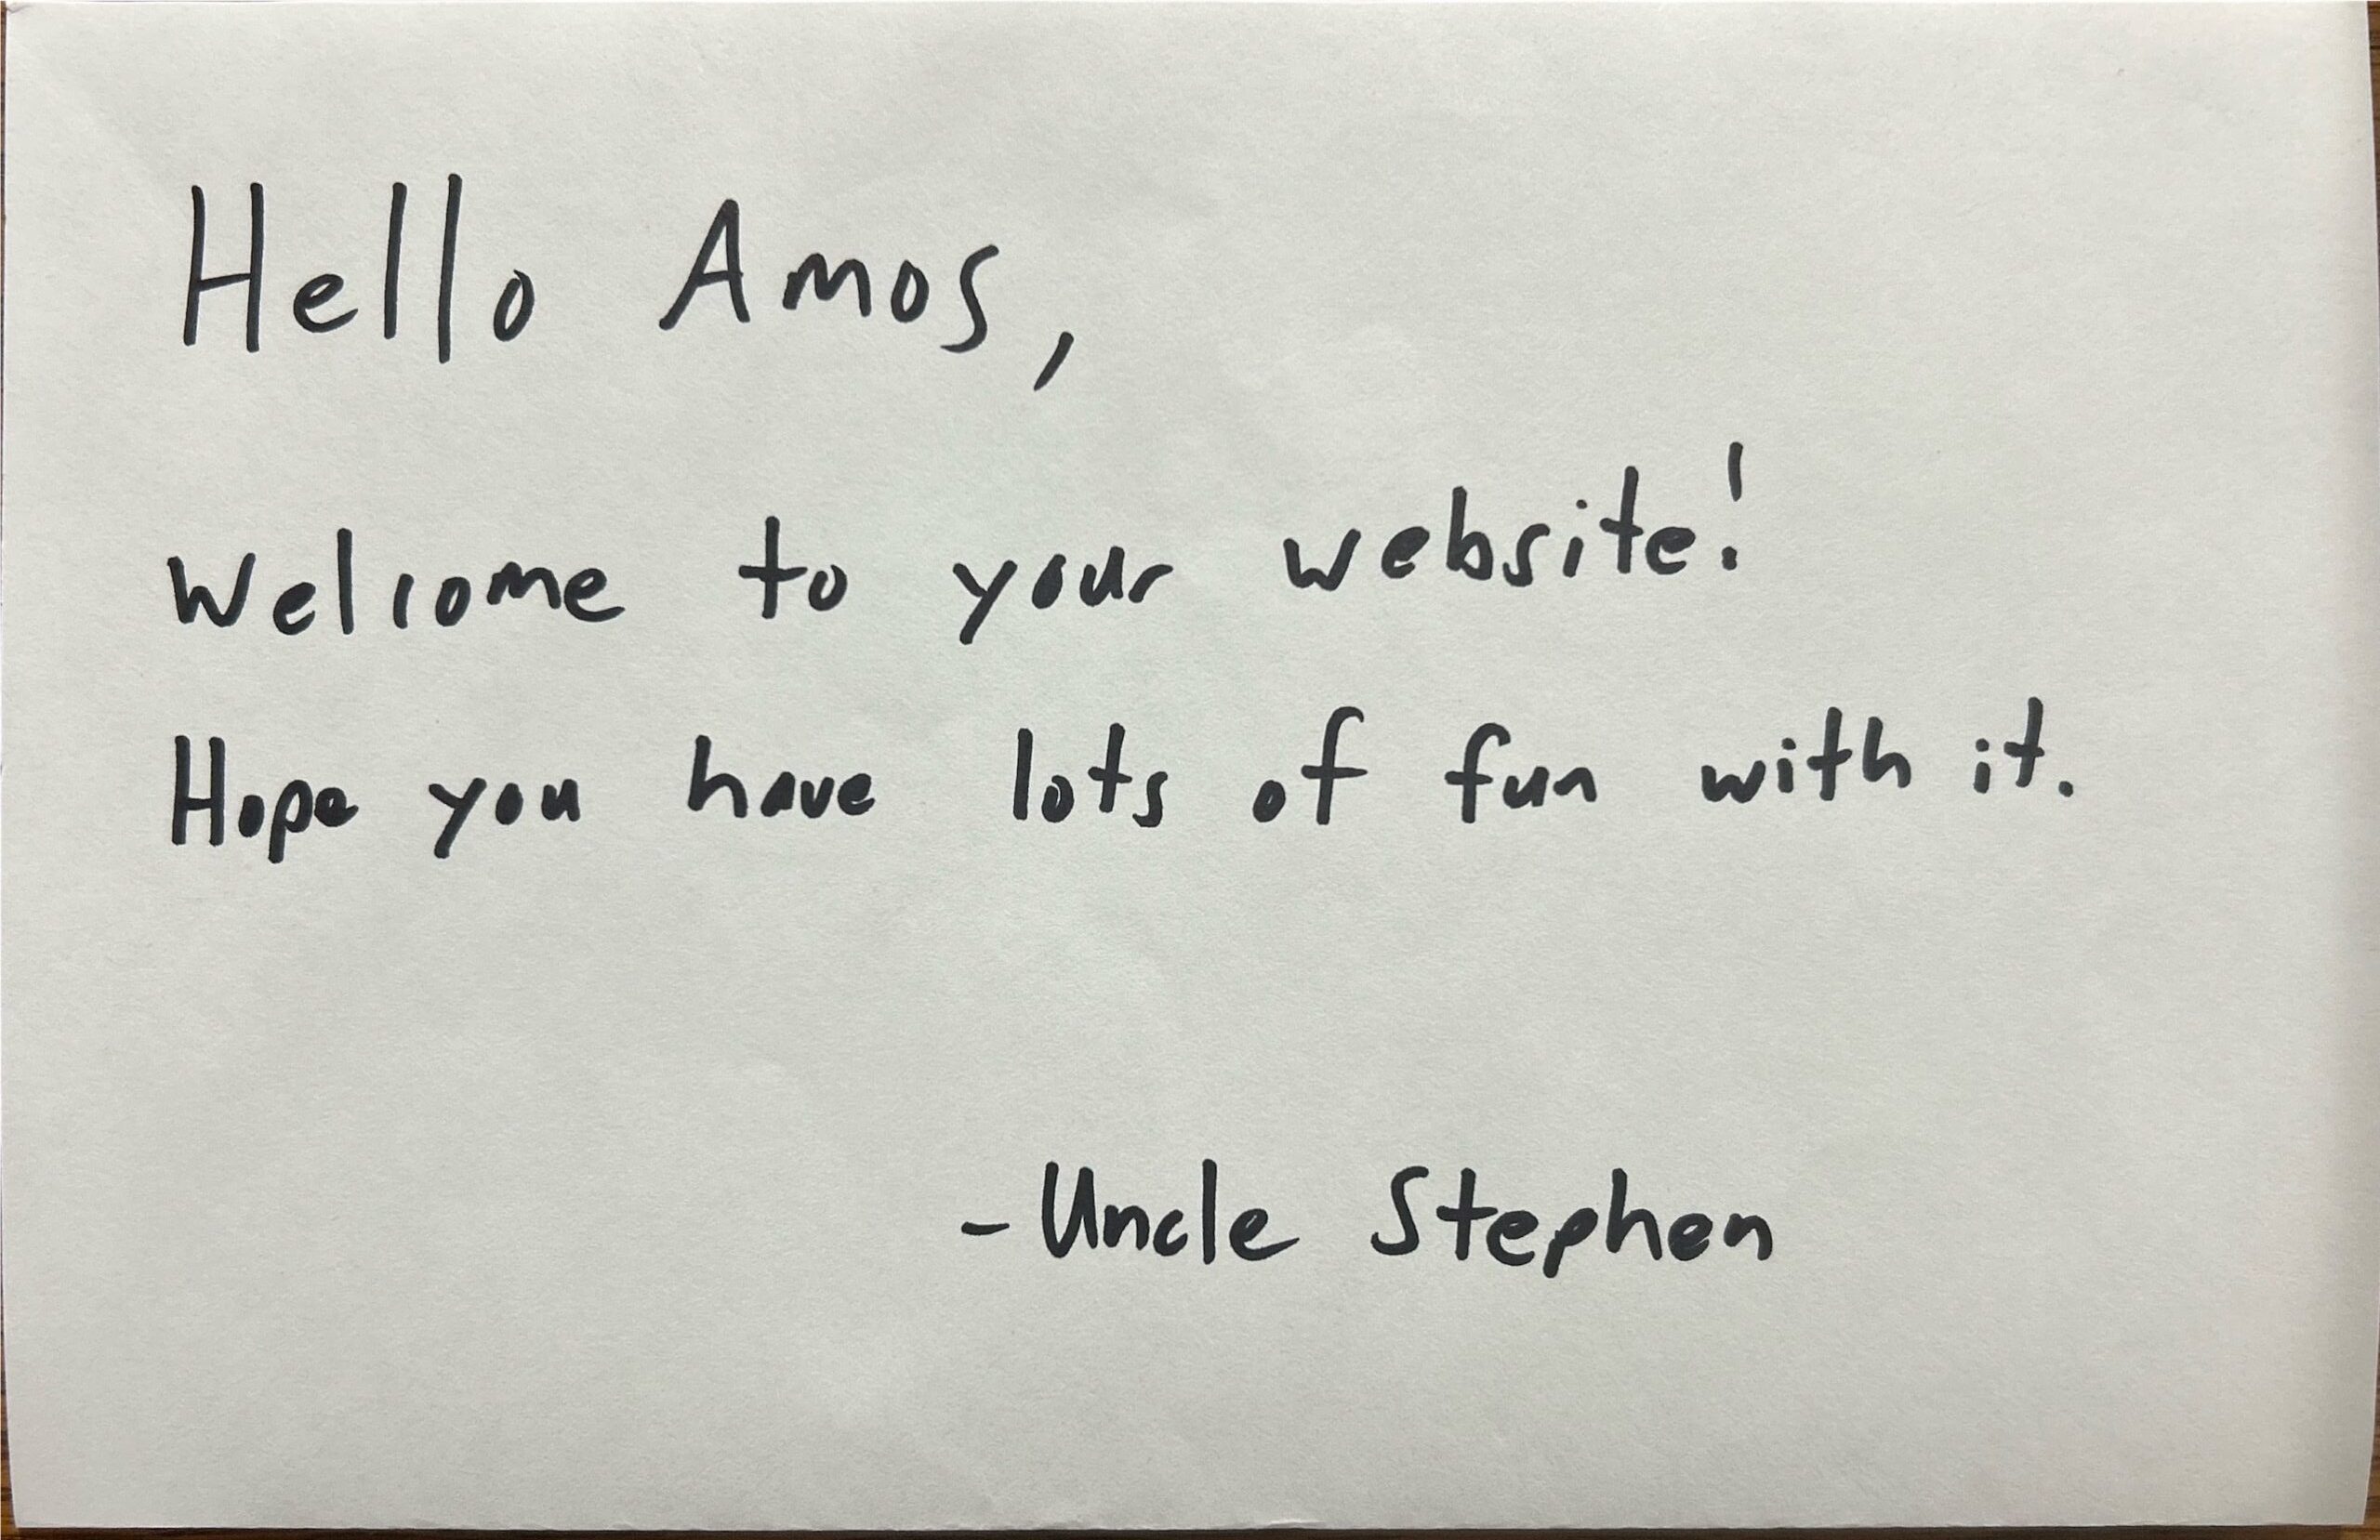 Hello Amos,
Welcome to your website!
Hope you have lots of fun with it.
- Uncle Stephen